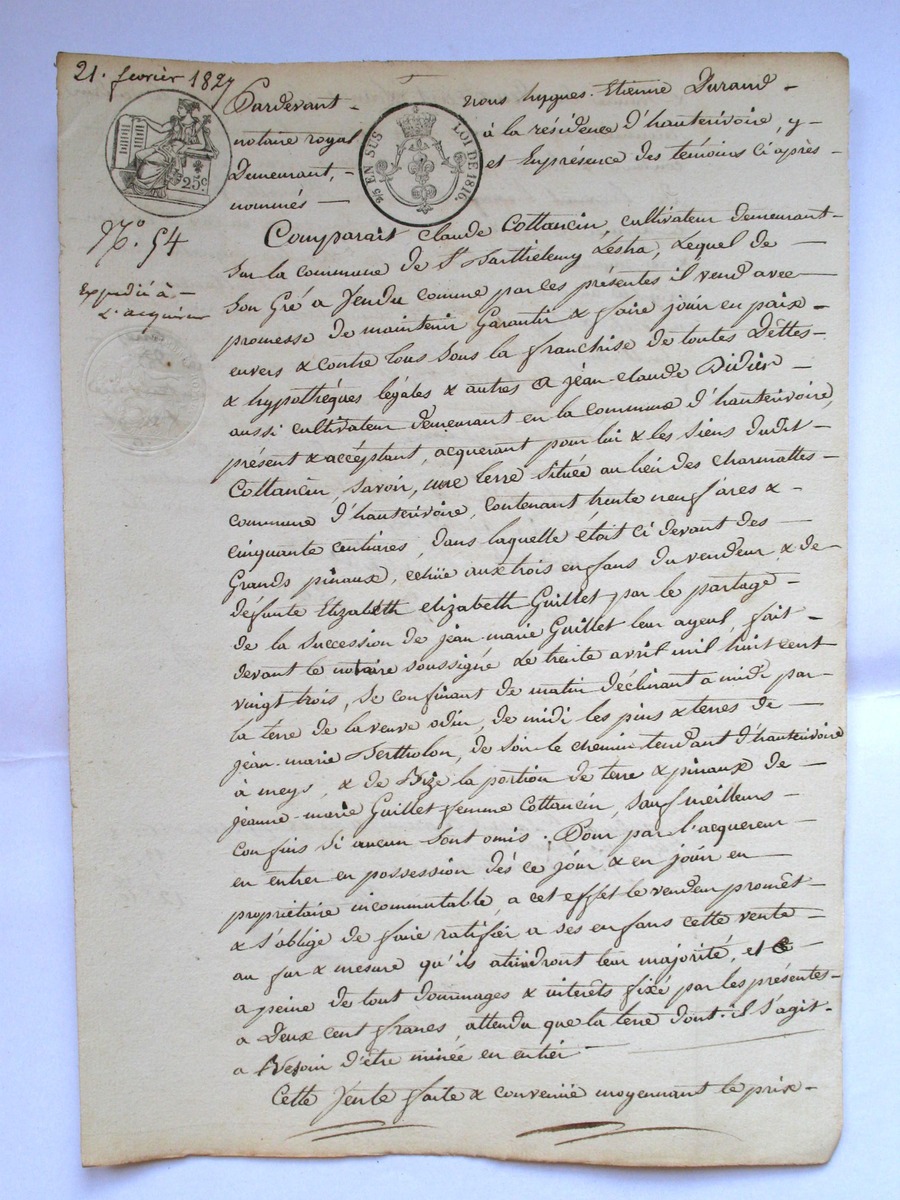 21. fevrier 1827
Pardevant - nous hugues Etienne Durand -
notaire royal à la résidence d'hauterivoire, y-
demeurant, - et En présence des témoins ci après -
nommés -
25c
2/5 EN SUS LOI DE 1816.
N.o 54
Expedié à -
L'acquereur
Comparait Claude Cottancin, cultivateur demeurant-
sur la commune de St Barthelemy Lestra, Lequel de -
Son Gré a Vendu comme par ces présentes il vend avec
promesse de maintenir Garantir & faire jouir en paix -
envers & contre tous sous la franchise de toutes Dèttes-
& hypothéques légales & autres a jean Claude Didier -
aussi cultivateur demeurant en la commune d'hauterivoire,
présent & accéptant, acquerant pour lui & les siens dudit -
Cottancin, savoir, une terre située au lieu des charmattes -
commune d'hauterivoire, contenant trente neuf ares & -
cinquante centiares, dans laquelle était ci devant des -
Grands pinaux, echüe aux trois enfans du vendeur & de -
défunte Elizabéth elizabeth Guillet par le partage -
de la succession de jean marie Guillet leur ayeul, fait -
devant le notaire soussigné de trente avril mil huit cent
vingt trois, se confinant de matin déclinant a midi par -
la terre de la veuve odin, de midi les pins & terres de -
jean marie Bertholon, de soir le chemin tendant d'hauterivoire
à meys, & de Bize la portion de terre & pinaux de -
jeanne marie Guillet femme Cottancin, sauf meilleurs -
confins si aucun sont omis. Pour par l'acquereur -
en entrer en possession dès ce jour & en jouir en -
propriétaire incommutable a cet effet le vendeur promêt -
& s'oblige de faire ratifier a ses enfans cette vente -
au fur & mesure qu'ils atindront leur majorité, et ce -
a peine de tout dommages & interêts fixé par les présentes-
a deux cent francs, attendu que la terre dont il s'agit -
a Besoin d'être minée en entier -
Cette Vente faite & convenüe moyennant le prix -